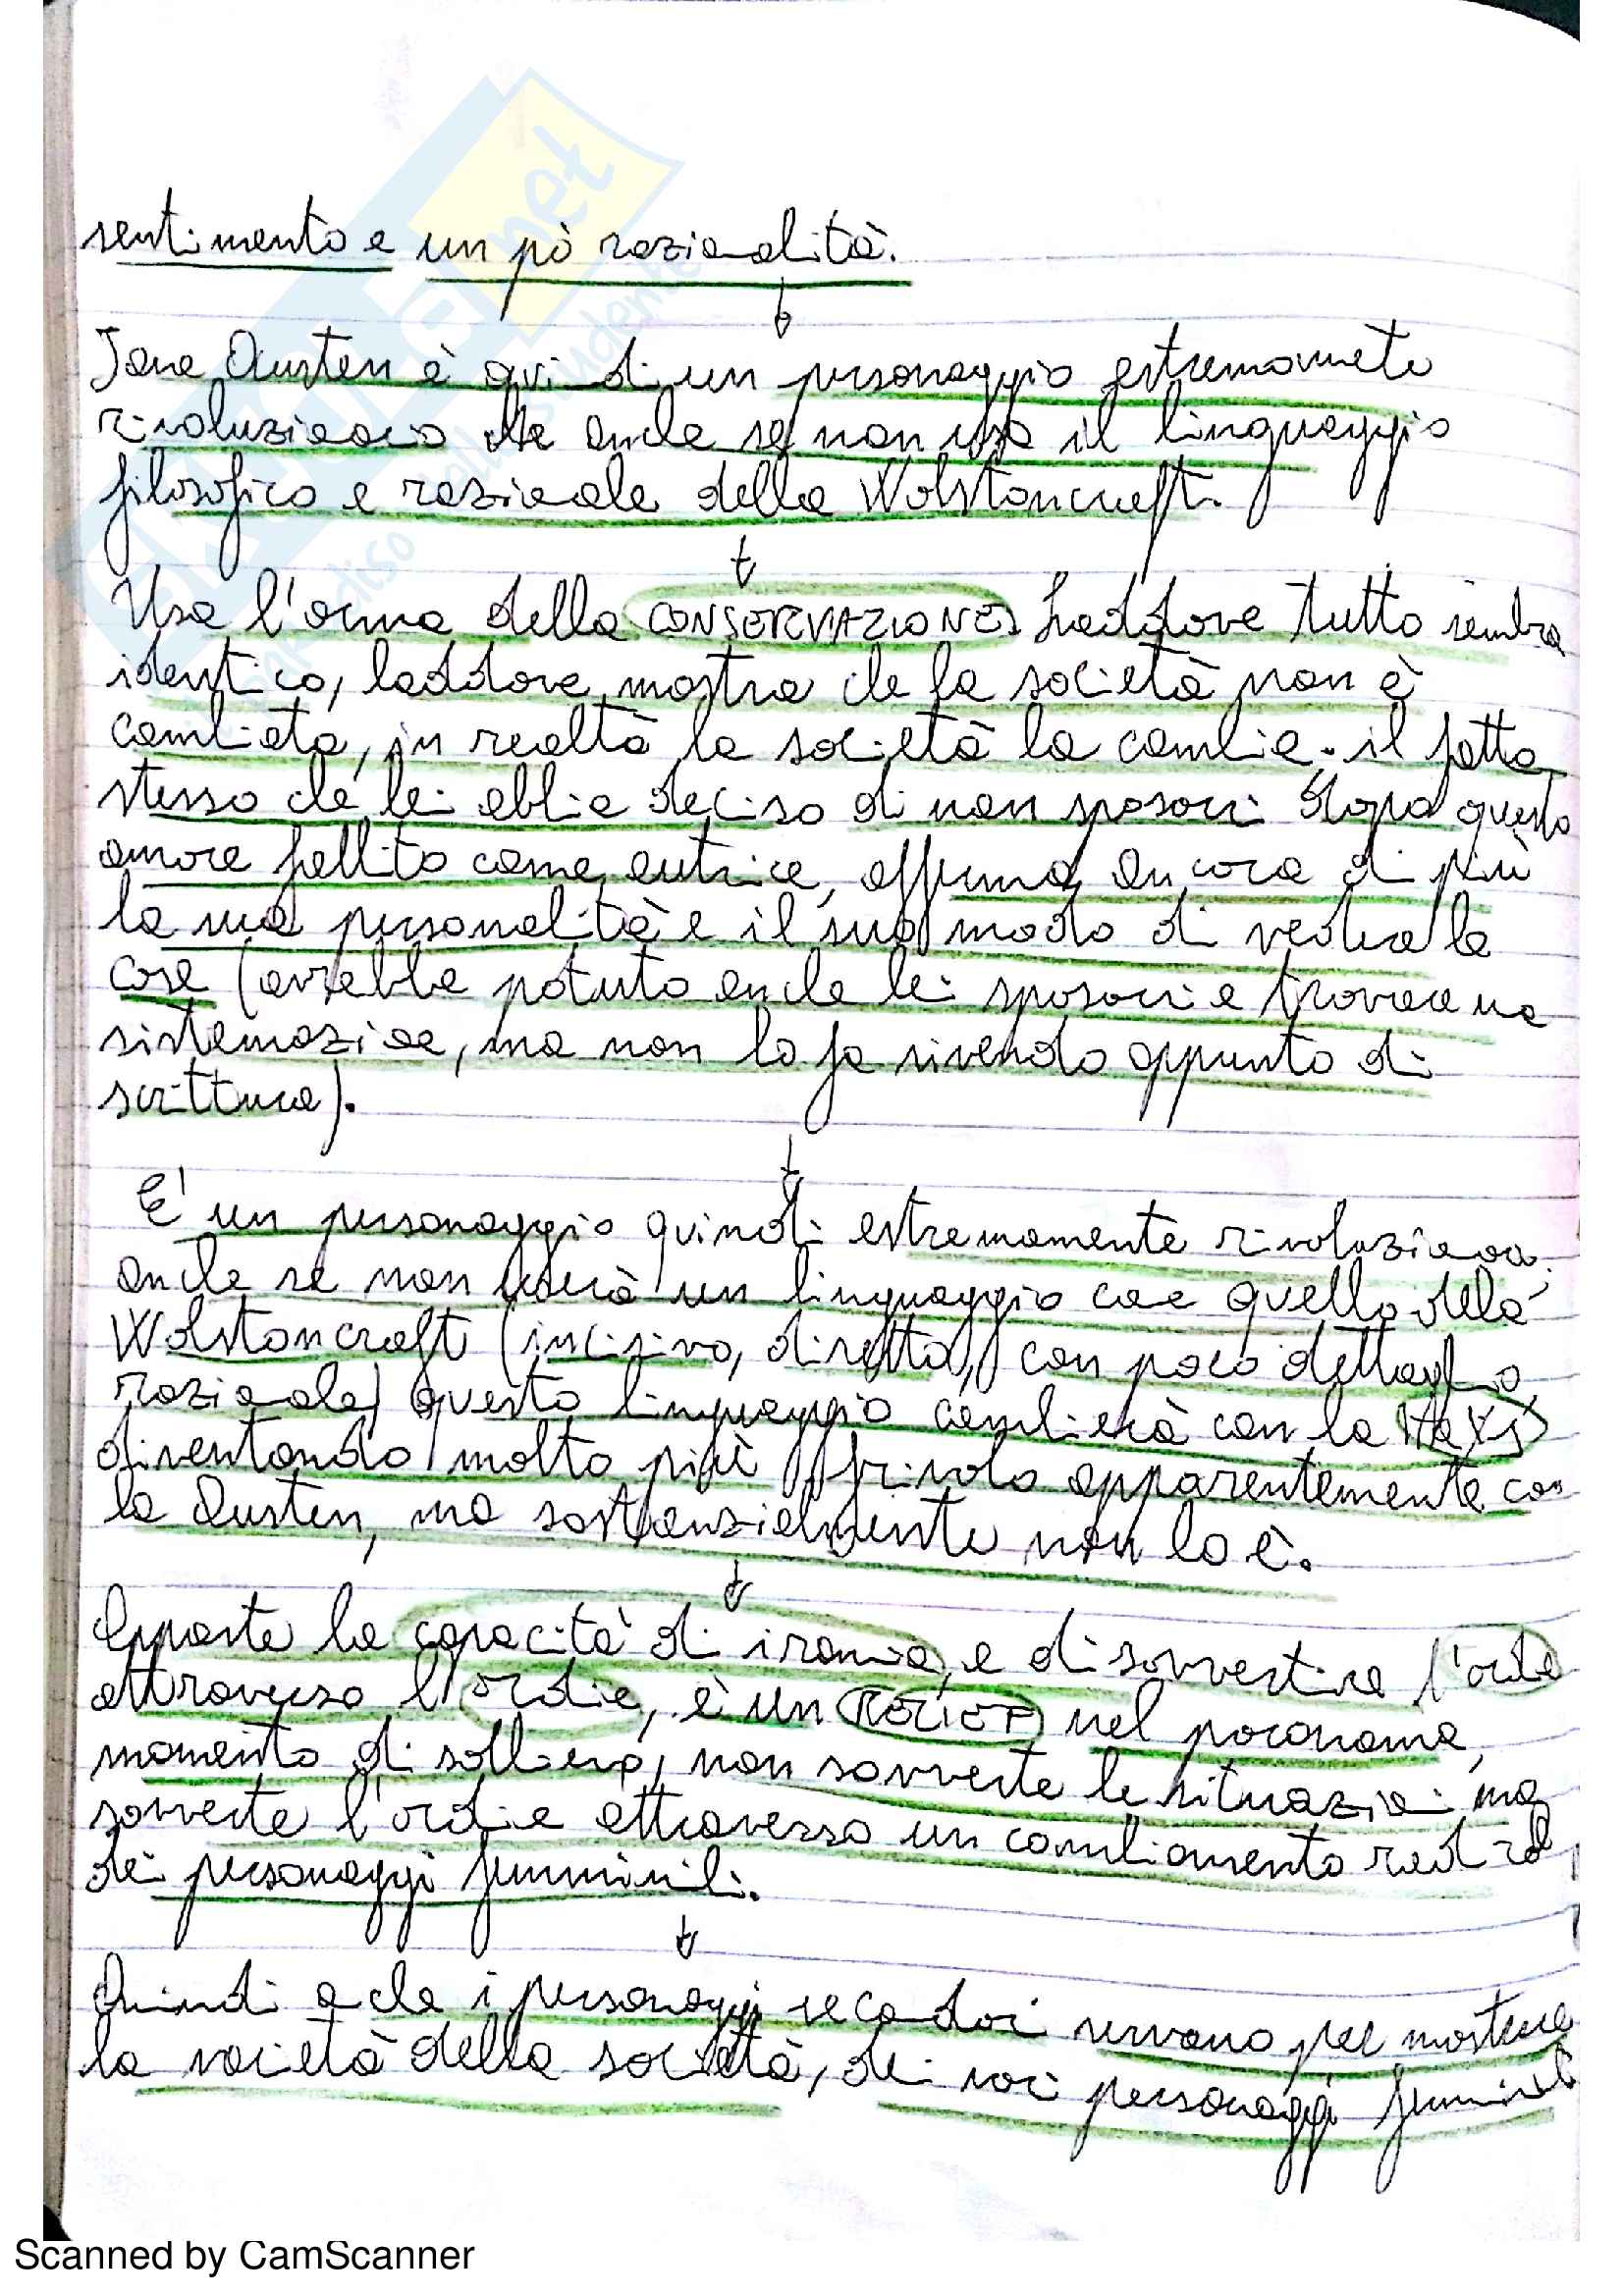 sentimento e un pò razionalità.
Jane Austen è quindi un personaggio estremamete
rivoluzionario che anche se non usa il linguaggio
filosofico e razionale della Wolstoncraft.
Usa l'arma della CONSERVAZIONE. Laddove tutto sembra
identico, laddove mostra che la società non è
cambiata, in realtà la società la cambia. il fatto
stesso che lei abbia deciso di non sposarsi dopo questo
amore fallito come autrice, afferma ancora di più
la sua personalità e il suo modo di vedere le
cose (avrebbe potuto anche lei sposarsi e trovare una
sistemazione, ma non lo fa vivendo appunto di
scrittura).
E' un personaggio quindi estremamente rivoluzionario
anche se non userà un linguaggio come quello della
Wolstoncraft (incisivo, diretto, con poco dettaglio,
razionale) questo linguaggio cambierà con la Hays
diventando molto più frivolo apparentemente con
la Austen, ma sostanzialmente non lo è.
la capacità di ironia, e di sovvertire l'ordine
attraverso l'ordine, è un nel panorama,
momento di sollievo, non sovverte le situazioni ma
sovverte l'ordine attraverso un cambiamento radicale
dei personaggi femminili.
Quindi anche i personaggi secondari servono per mostrare
la varietà della società, dei vari personaggi femminili
Scanned by CamScanner